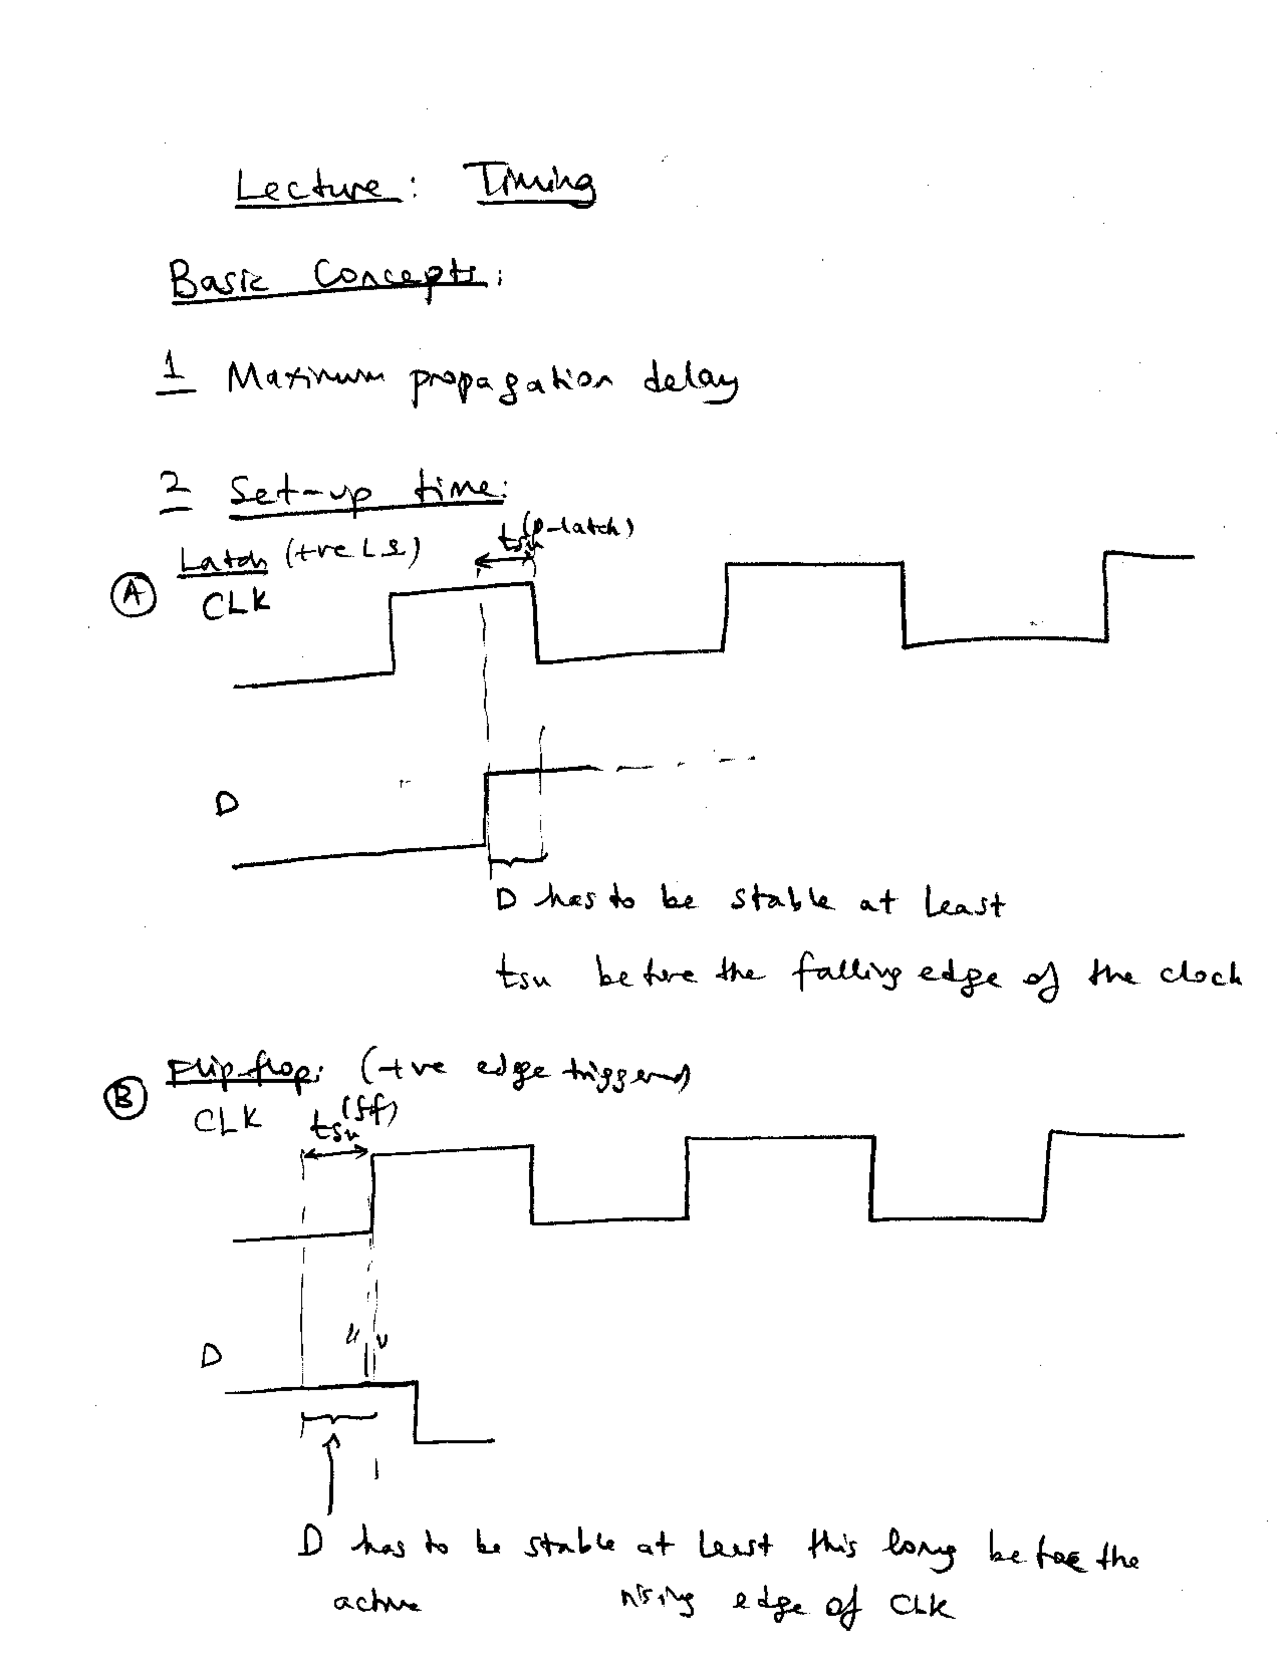 Lecture: Timing
Basic Concepts:
1 Maximum propagation delay
2 Set-up time:
Latch (+ve LS)
tsu (D-latch)
A
CLK
D
D has to be stable at least
tsu before the falling edge of the clock
B Flip-flop: (+ve edge triggered)
CLK tsu (ff)
D
D has to be stable at least this long before the
active rising edge of CLK